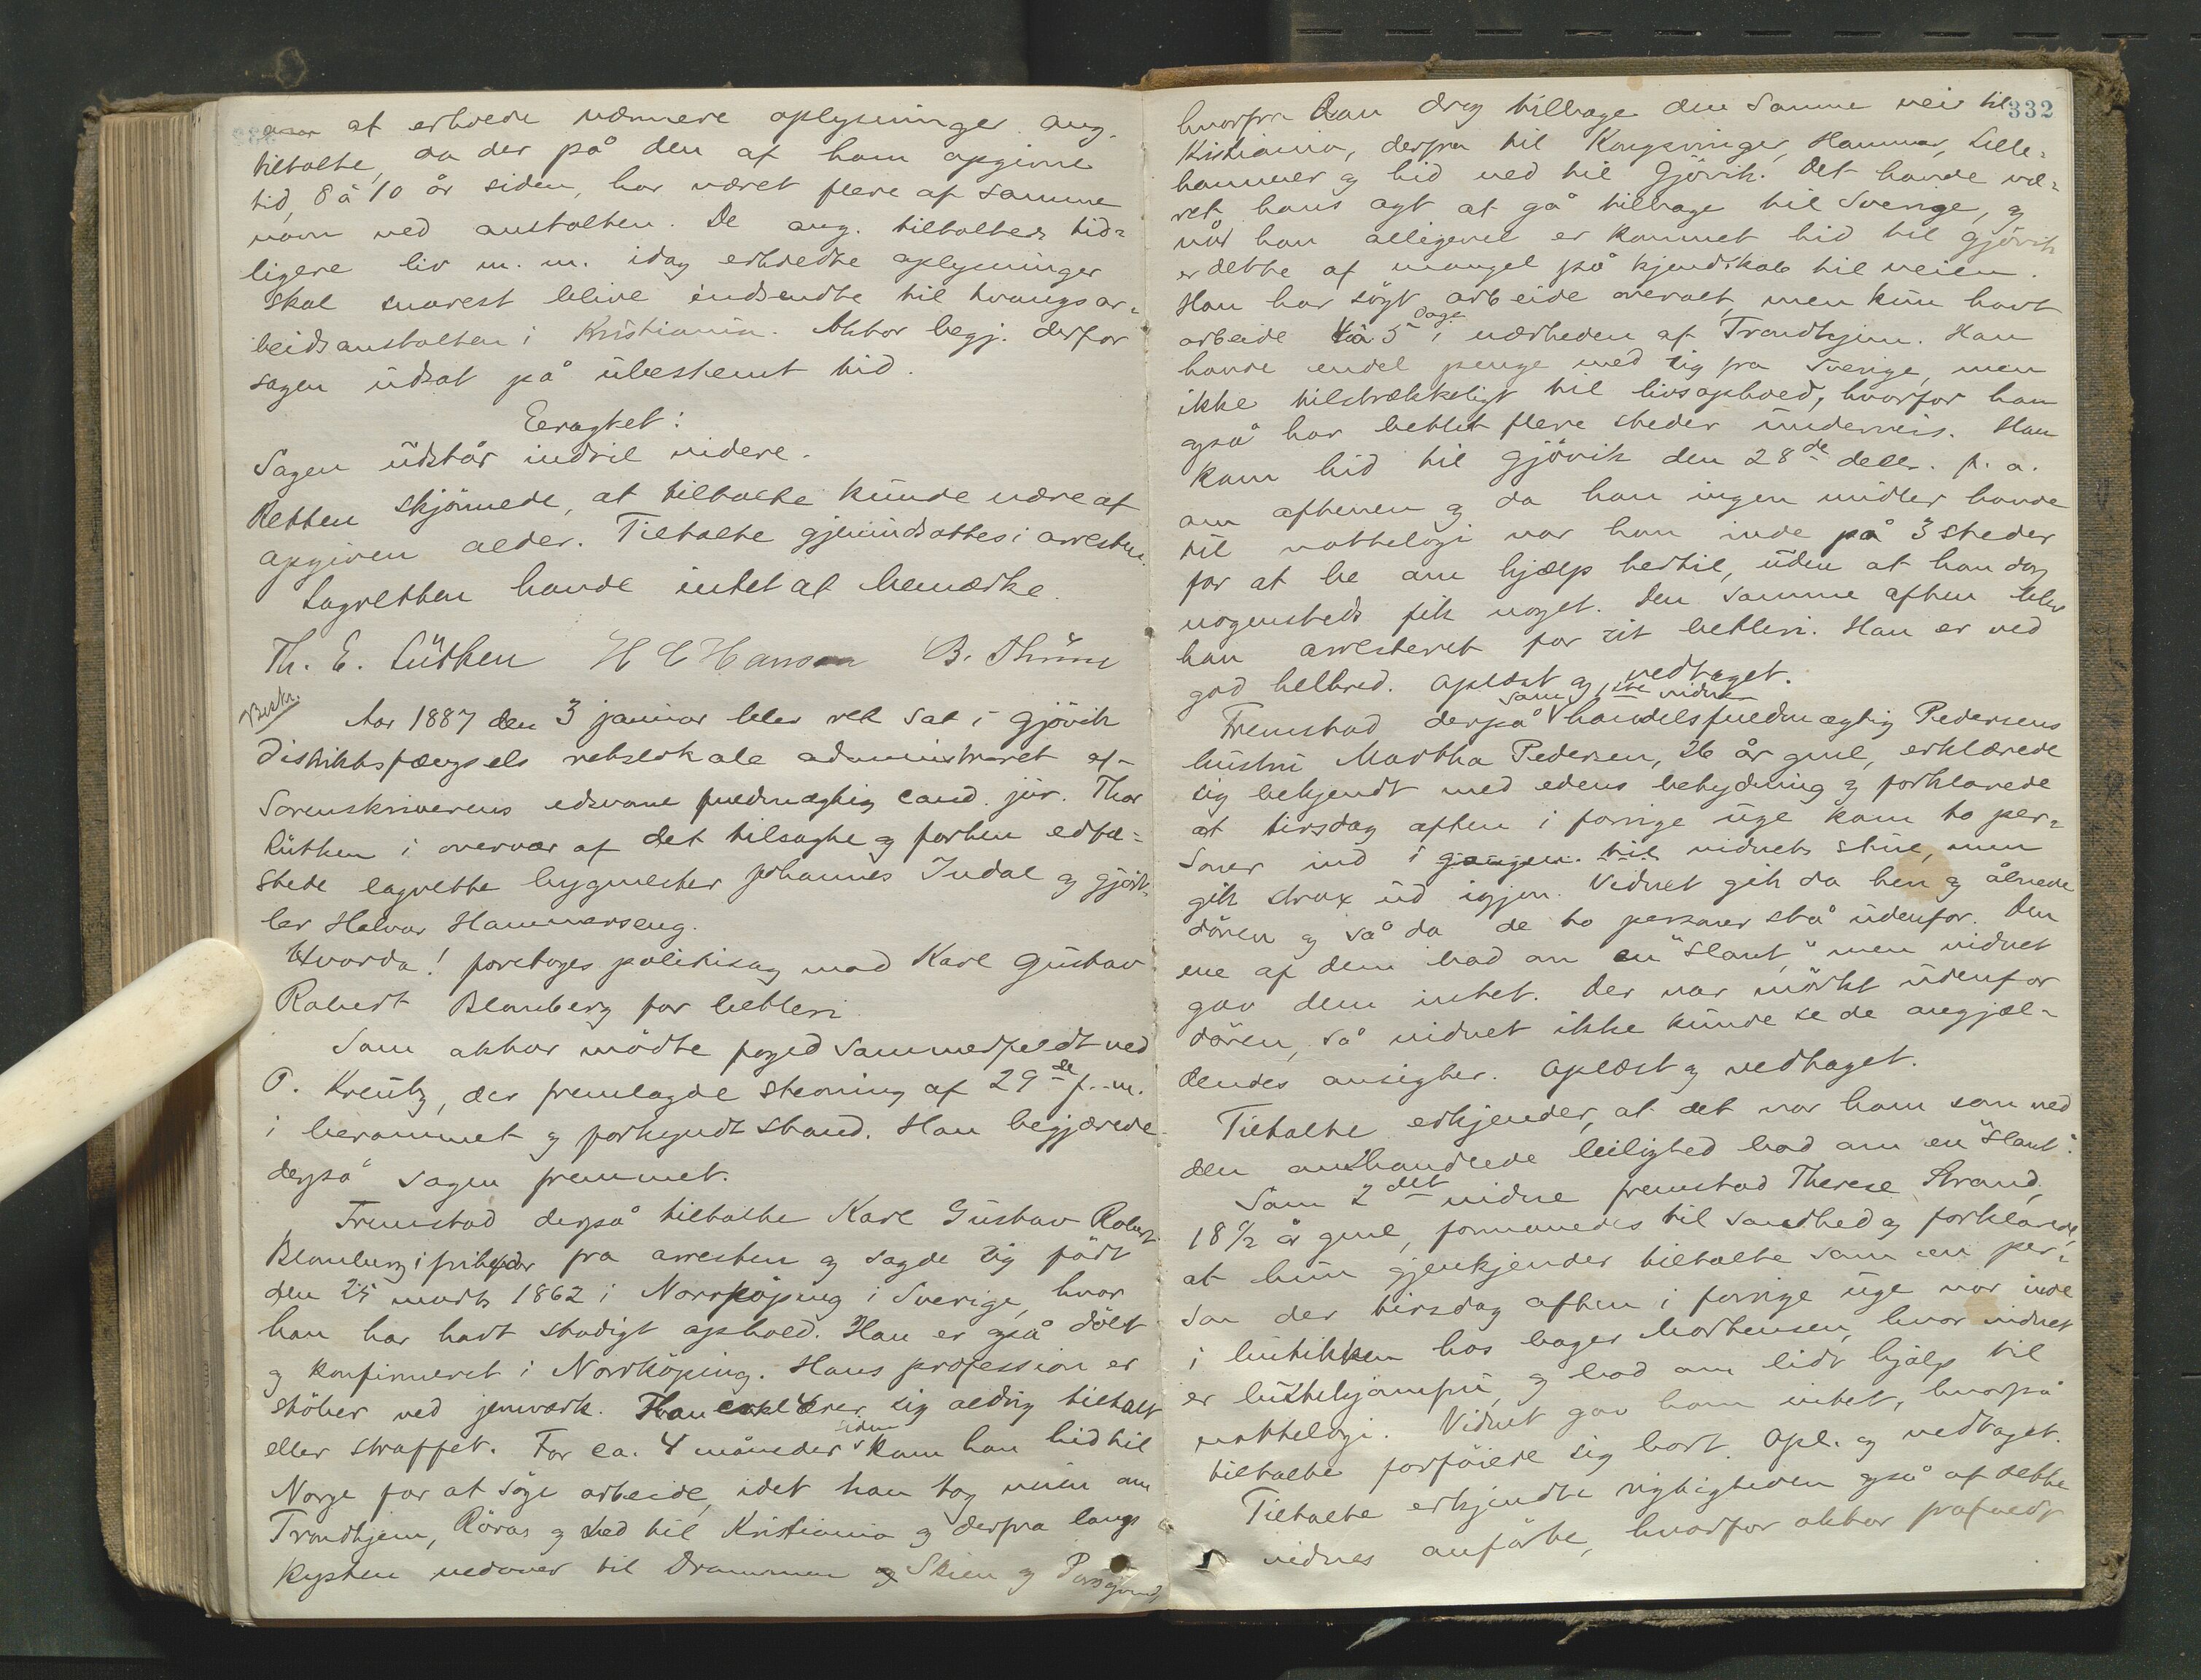 at erholde nærmere oplysninger ang.
tiltalte, da der på den af ham opgivne
tid, 8 à 10 år siden, har været flere af samme
navn ved anstalten. De ang. tiltaltes tid=
ligere liv m. m. idag erholdte oplysninger
skal snarest blive indsendte til tvangsar=
beidsanstalten i Kristiania. Aktor begj. derfor
sagen udsat på ubestemt tid.
Eragtet:
Sagen udstår indtil videre.
Retten skjönnede, at tiltalte kunde være af
opgiven alder. Tiltalte gjenindsattes i arresten.
Lagretten havde intet at bemærke.
Th. E. Lütken H C Hansen B. Thune
Beskr.
Aar 1887 den 3 januar blev ret sat i Gjövik
distriktsfængsels retslokale administreret af
Sorenskriverens edsvorne fuldmægtig cand. jur. Thor
Lütken i overvær af det tilsagte og forhen edfæ=
stede lagrette bygmester Johannes Indal og gjört=
ler Halvor Hammerseng.
Hvorda! foretoges politisag mod Karl Gustav
Robert Blomberg for betleri
Som aktor mödte foged Sommerfeldt ved
O. Kreutz, der fremlagde stevning af 29de f. m.
i berammet og forkyndt stand. Han begjærede
derpå sagen fremmet.
Fremstod derpå tiltalte Karl Gustav Robert
Blomberg i friheder fra arresten og sagde sig födt
den 25 marts 1862 i Norrköping i Sverige, hvor
han har havt stadigt ophold. Han er også döbt
og konfirmeret i Norrköping. Hans profession er
stöber ved jernværk. Han erklærer sig aldrig tiltalt
eller straffet. For ca. 4 måneder siden kom han hid til
Norge for at söge arbeide, idet han tog veien om
Trondhjem, Röros og ned til Kristiania og derfra langs
kysten nedover til Drammen og Skien og Porsgrund,
332
hvorfra han drog tilbage den samme vei til
Kristiania, derfra til Kongsvinger, Hammar, Lille=
hammer og hid ned til Gjövik. Det havde væ=
ret hans agt at gå tilbage til Sverige, og
når han alligevel er kommet hid til Gjövik
er dette af mangel på kjendskab til veien.
Han har sögt arbeide overalt, men kun havt
arbeide 4 à 5 dage i nærheden af Trondhjem. Han
havde endel penge med sig fra Sverige, men
ikke tilstrækkeligt til livsophold, hvorfor han
også har betlet flere steder underveis. Han
kom hid til Gjövik den 28de decbr. f. a.
om aftenen og da han ingen midler havde
til nattelogi var han inde på 3 steder
for at be om hjælp hertil, uden at han dog
nogensteds fik noget. Den samme aften blev
han arresteret for sit betleri. Han er ved
god helbred. Oplæst og vedtaget.
Fremstod derpå som 1ste vidne handelsfuldmægtig Pedersens
hustru Martha Pedersen, 26 år gml, erklærede
sig bekjendt med edens betydning og forklarede
at tirsdag aften i forrige uge kom to per=
soner ind i gangen til vidnets stue, men
gik strax ud igjen. Vidnet gik da hen og åbnede
dören og så da de to personer stå udenfor. Den
ene af dem bad om en "slant", men vidnet
gav dem intet. Der var mörkt udenfor
dören, så vidnet ikke kunde se de angjæl=
dendes ansigter. Oplæst og vedtaget.
Tiltalte erkjender, at det var ham som ved
den omhandlede leilighed bad om en "slant".
Som 2det vidne fremstod Therese Strand,
18 1/2 år gml, formanedes til sandhed og forklarede,
at hun gjenkjender tiltalte som en per=
son der tirsdag aften i forrige uge var inde
i butikken hos bager Mortensen, hvor vidnet
er butikjomfru, og bad om lidt hjælp til
nattelogi. Vidnet gav ham intet, hvorpå
tiltalte forföiede sig bort. Opl. og vedtaget.
Tiltalte erkjendte rigtigheden også af dette
vidnes anförte, hvorfor aktor frafaldt